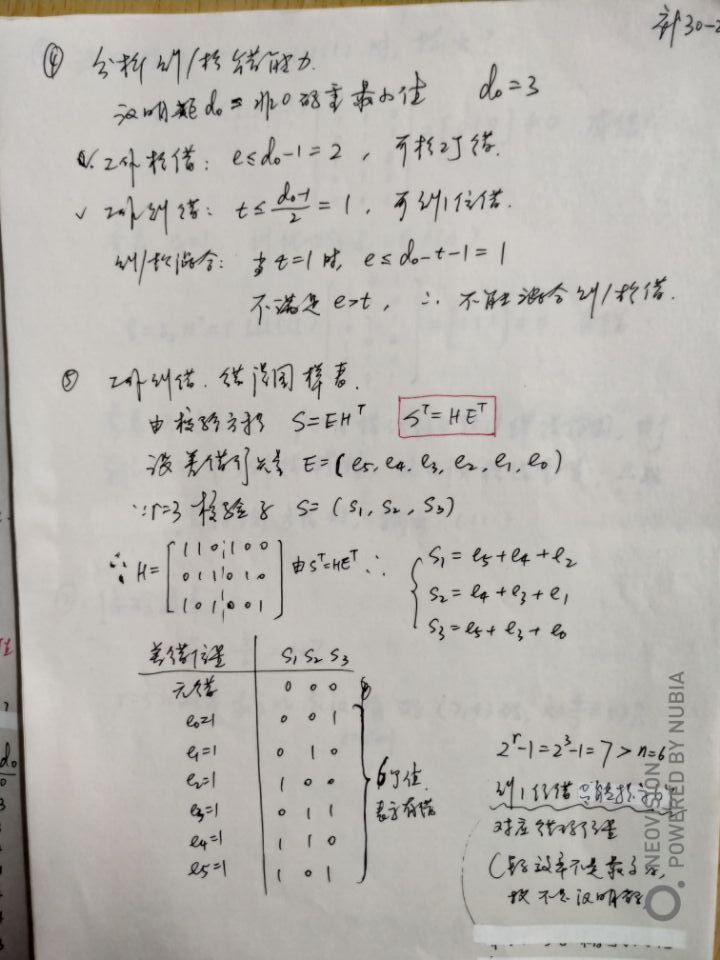 计30-2
④ 分析纠/检错能力.
汉明距d₀ = 非0码重最小值 d₀=3
∨. 工作检错: e≤d₀-1=2, 可检2丁错.
∨ 工作纠错: t≤(d₀-1)/2=1, 可纠1位错.
纠/检混合: 当t=1时, e≤d₀-t-1=1
不满足e>t, ∴ 不能混合纠/检错.
⑤ 工作纠错. 错误图样表.
由校验方程 S=EHᵀ Sᵀ=HEᵀ
设差错行矢量 E=(e₅, e₄, e₃, e₂, e₁, e₀)
∵r=3 校验子 S=(S₁, S₂, S₃)
∴ H=[110100
011010
101001] 由Sᵀ=HEᵀ ∴
{S₁=e₅+e₄+e₂
S₂=e₄+e₃+e₁
S₃=e₅+e₃+e₀
差错位置 S₁ S₂ S₃
无错 0 0 0
e₀=1 0 0 1
e₁=1 0 1 0
e₂=1 1 0 0
e₃=1 0 1 1
e₄=1 1 1 0
e₅=1 1 0 1
6个值
表示有错
2ʳ-1=2³-1=7>n=6
纠1位错
对应错码位置
(码效率不是最高,
故不是汉明码)
NEOVISION
POWERED BY NUBIA
d₀